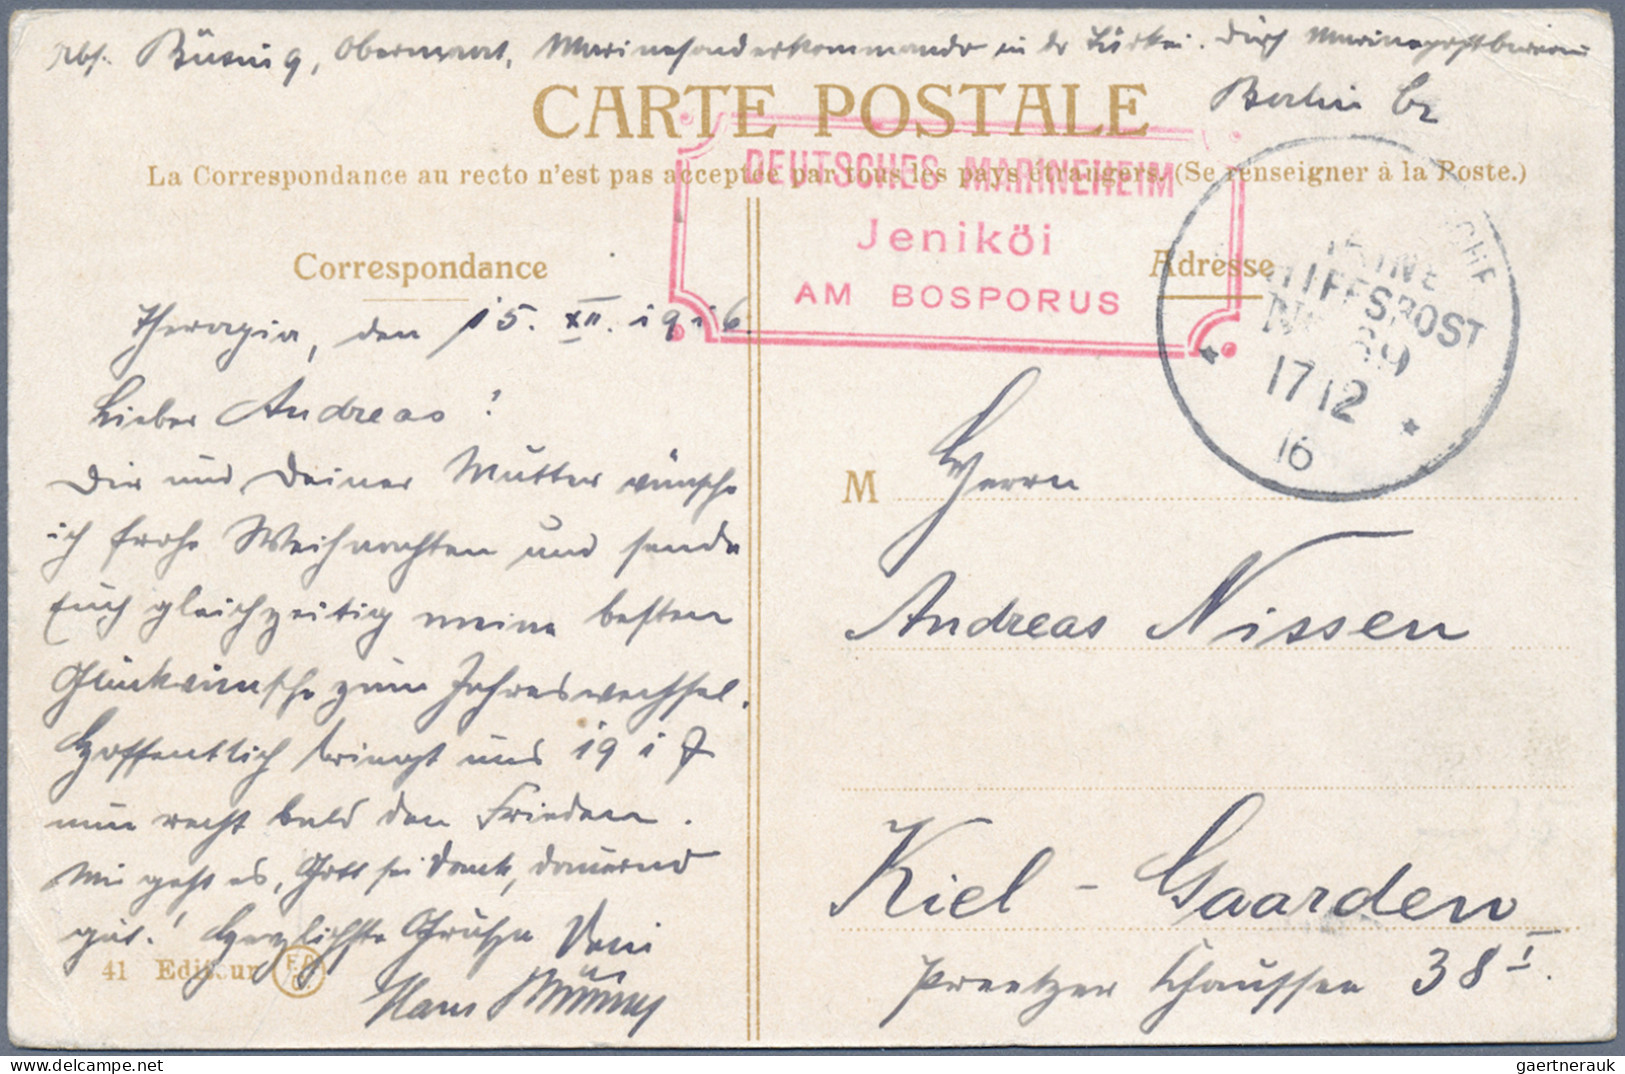 Abs. Büsing, Obermaat, Marinesonderkommando in der Türkei. Durch Marinepostbureau
Berlin C2
CARTE POSTALE
La Correspondance au recto n'est pas acceptée par tous les pays étrangers. (Se renseigner à la Poste.)
DEUTSCHES MARINEHEIM
Jeniköi
AM BOSPORUS
SCHE
MARINE
SCHIFFSPOST
No 39
17 12
16
Correspondance
Adresse
Therapia, den 15. XII. 1916.
Lieber Andreas!
Dir und Deiner Mutter wünsche
ich frohe Weihnachten und sende
Euch gleichzeitig meine besten
Glückwünsche zum Jahreswechsel.
Hoffentlich bringt uns 1917
nun recht bald den Frieden.
Mir geht es, Gott sei Dank, dauernd
gut! Herzlichste Grüße Dein
Hans
41 Editeur
M Herrn
Andreas Nissen
Kiel - Gaarden
Preetzer Chaussee 38 I.
gaertnerauk